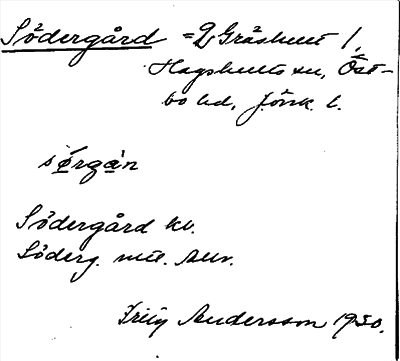 Södergård = 2 Gräshult 1,
Hagshults sn, Öst-
bo hd, Jönk. l.
sørgan
Södergård kv.
Söderg.
Andersson 1930.